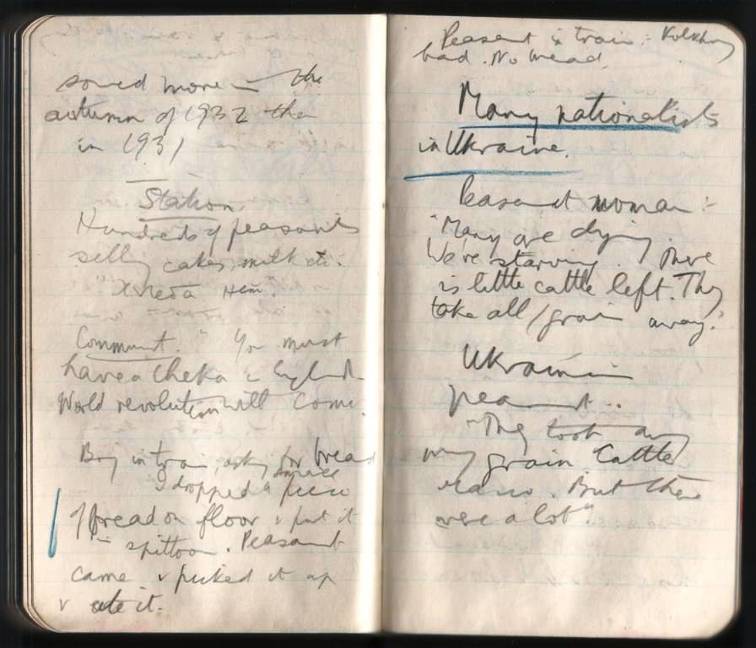 sowed more in the
autumn of 1932 than
in 1931
Station.
Hundreds of peasants
selling cakes, milk etc.
"Хлеба нет."
Communist. "You must
have a Cheka in England
World revolution will come.
Boy in train, asking for bread
I dropped a small piece
of bread on floor & put it
in spittoon. Peasant
came & picked it up
& ate it.
Peasant in train: Kolkhoz
bad. No bread.
Many nationalists
in Ukraine.
Peasant woman:-
"Many are dying.
We're starving. There
is little cattle left. They
take all grain away."
Ukrainian
peasant..
"They took away
my grain. Cattle
. But there
were a lot".